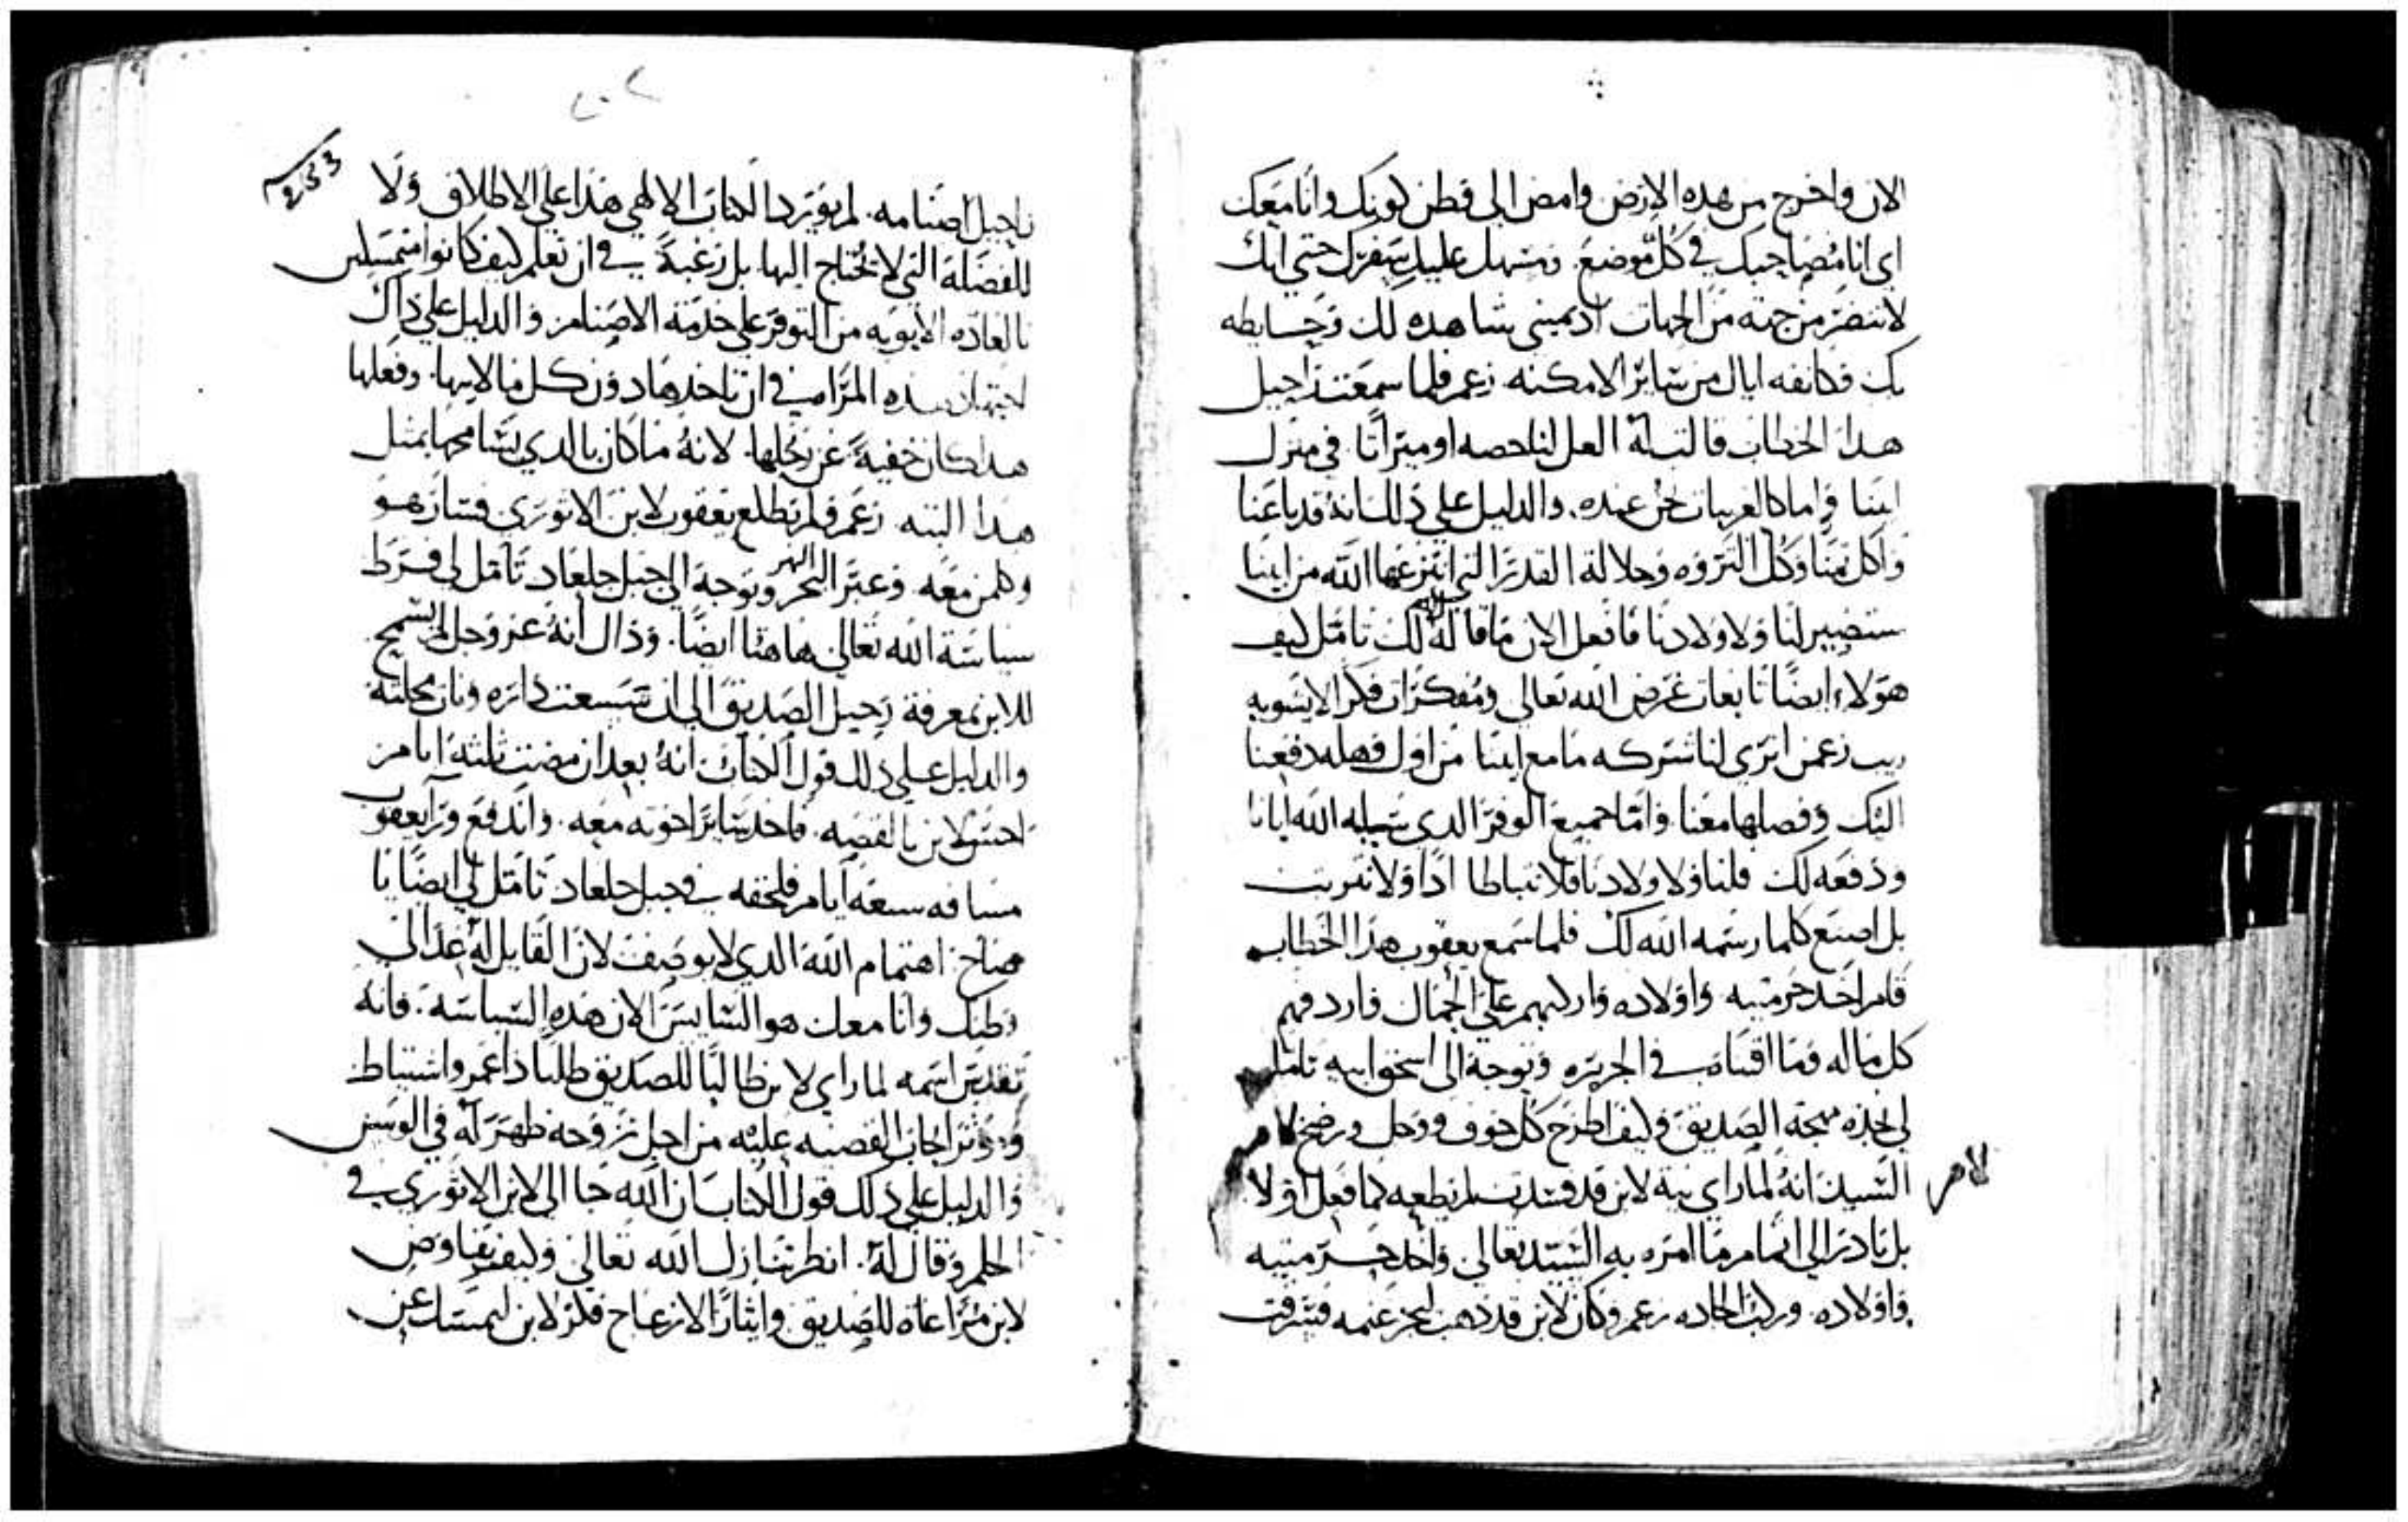 الان واخرج من هده الارض وامض الى قطن كونك وانا معك
اي انا مصاحبك في كل موضع. ومسهل عليك سفرك حتي انك
لا تنضر من جهة من الجهات اد يميني شاهده لك وحايطه
بك فكانفه اياك من ساير الامكنه. زعم فلما سمعت راحيل
هدا الخطاب قالت له العل لنا حصه او ميراثا في منزل
ابينا واما كالغريبات نحن عنده. والدليل علي ذلك انه قد باعنا
واكل ثمننا وكل الثروه وجلالة القدر التي انتزعها الله من ابينا
ستصير لنا ولاولادنا فافعل الان ما قاله الله لك تامل كيف
هولاء ايضا تابعات غرض الله تعالى ومفكرات فكرا لا يشوبه
ريب زعمن اترى لنا شركه ما مع ابينا من اول وهله دفعنا
اليك وفصلها معنا. واما جميع الوفر الدي سلبه الله ابانا
ودفعه لك فلنا ولاولادنا فلا تتباطا ادا ولا تتريث
بل اصنع كلما رسمه الله لك فلما سمع يعقوب هذا الخطاب
قام اخد حرمتيه واولاده واركبهم على الجمال فاردفهم
كل ماله وما اقتناه في الجزيره وتوجه الى اسحق ابيه تامل
لي هذه مهجة الصديق وكيف اطرح كل خوف ووجل ورضخ لامر
لامر
السيد انه لما راى نية لابن قد فسدت لم يطعه كما فعل اولا
بل بادر الي اتمام ما امره به السيد تعالى واخد حرمتيه
واولاده. وركب الجاده زعم وكان لابن قد ذهب ليجز غنمه فسرقت
٢٠٢
راحيل اصنامه. لم يورد الكتاب الالهي هذا علي الاطلاق ولا
للفضلة التي لا تحتاج اليها. بل رغبة في ان تعلم كيف كانوا متمسكين
بالعاده الابويه من التوفر علي خدمة الاصنام والدليل علي ذاك
اجتهاد هده المراه في ان تاخدها دون كل ما لابيها. وفعلها
هدا كان خفية عن رجلها. لانه ما كان بالدي يسامحها بمثل
هدا البته زعم فلم يطلع يعقوب لابن الاثوري فسار هو
وكلمن معه. وعبر البحر النهر وتوجه الى جبل جلعاد تامل لي فرط
سياسة الله تعالى هاهنا ايضا. وذاك انه عز وجل لم يسمح
للابن بمعرفة رحيل الصديق الى ان تشسعت داره وبان محلته
والدليل على ذلك قول الكتاب انه بعد ان مضت ثلثة ايام
احس لابن بالقضيه. فاخد ساير اخوته معه. واندفع ورا يعقوب
مسافه سبعه ايام فلحقه في جبل جلعاد تامل لي ايضا يا
صاح. اهتمام الله الدي لا يوصف لان القايل له عد الى
وطنك وانا معك هو السايس الان هذه السياسه. فانه
تقدس اسمه لما راي لابن طالبا للصديق طلبا ذا عمر واشتياط
والدليل علي ذلك قول الكتاب ان الله جا الى لابن الاثوري في
الحلم وقال له. انظر تنازل الله تعالى وكيف يفاوض
لابن مراعاة للصديق وايثارا لازعاج فكر لابن ليمسك عن